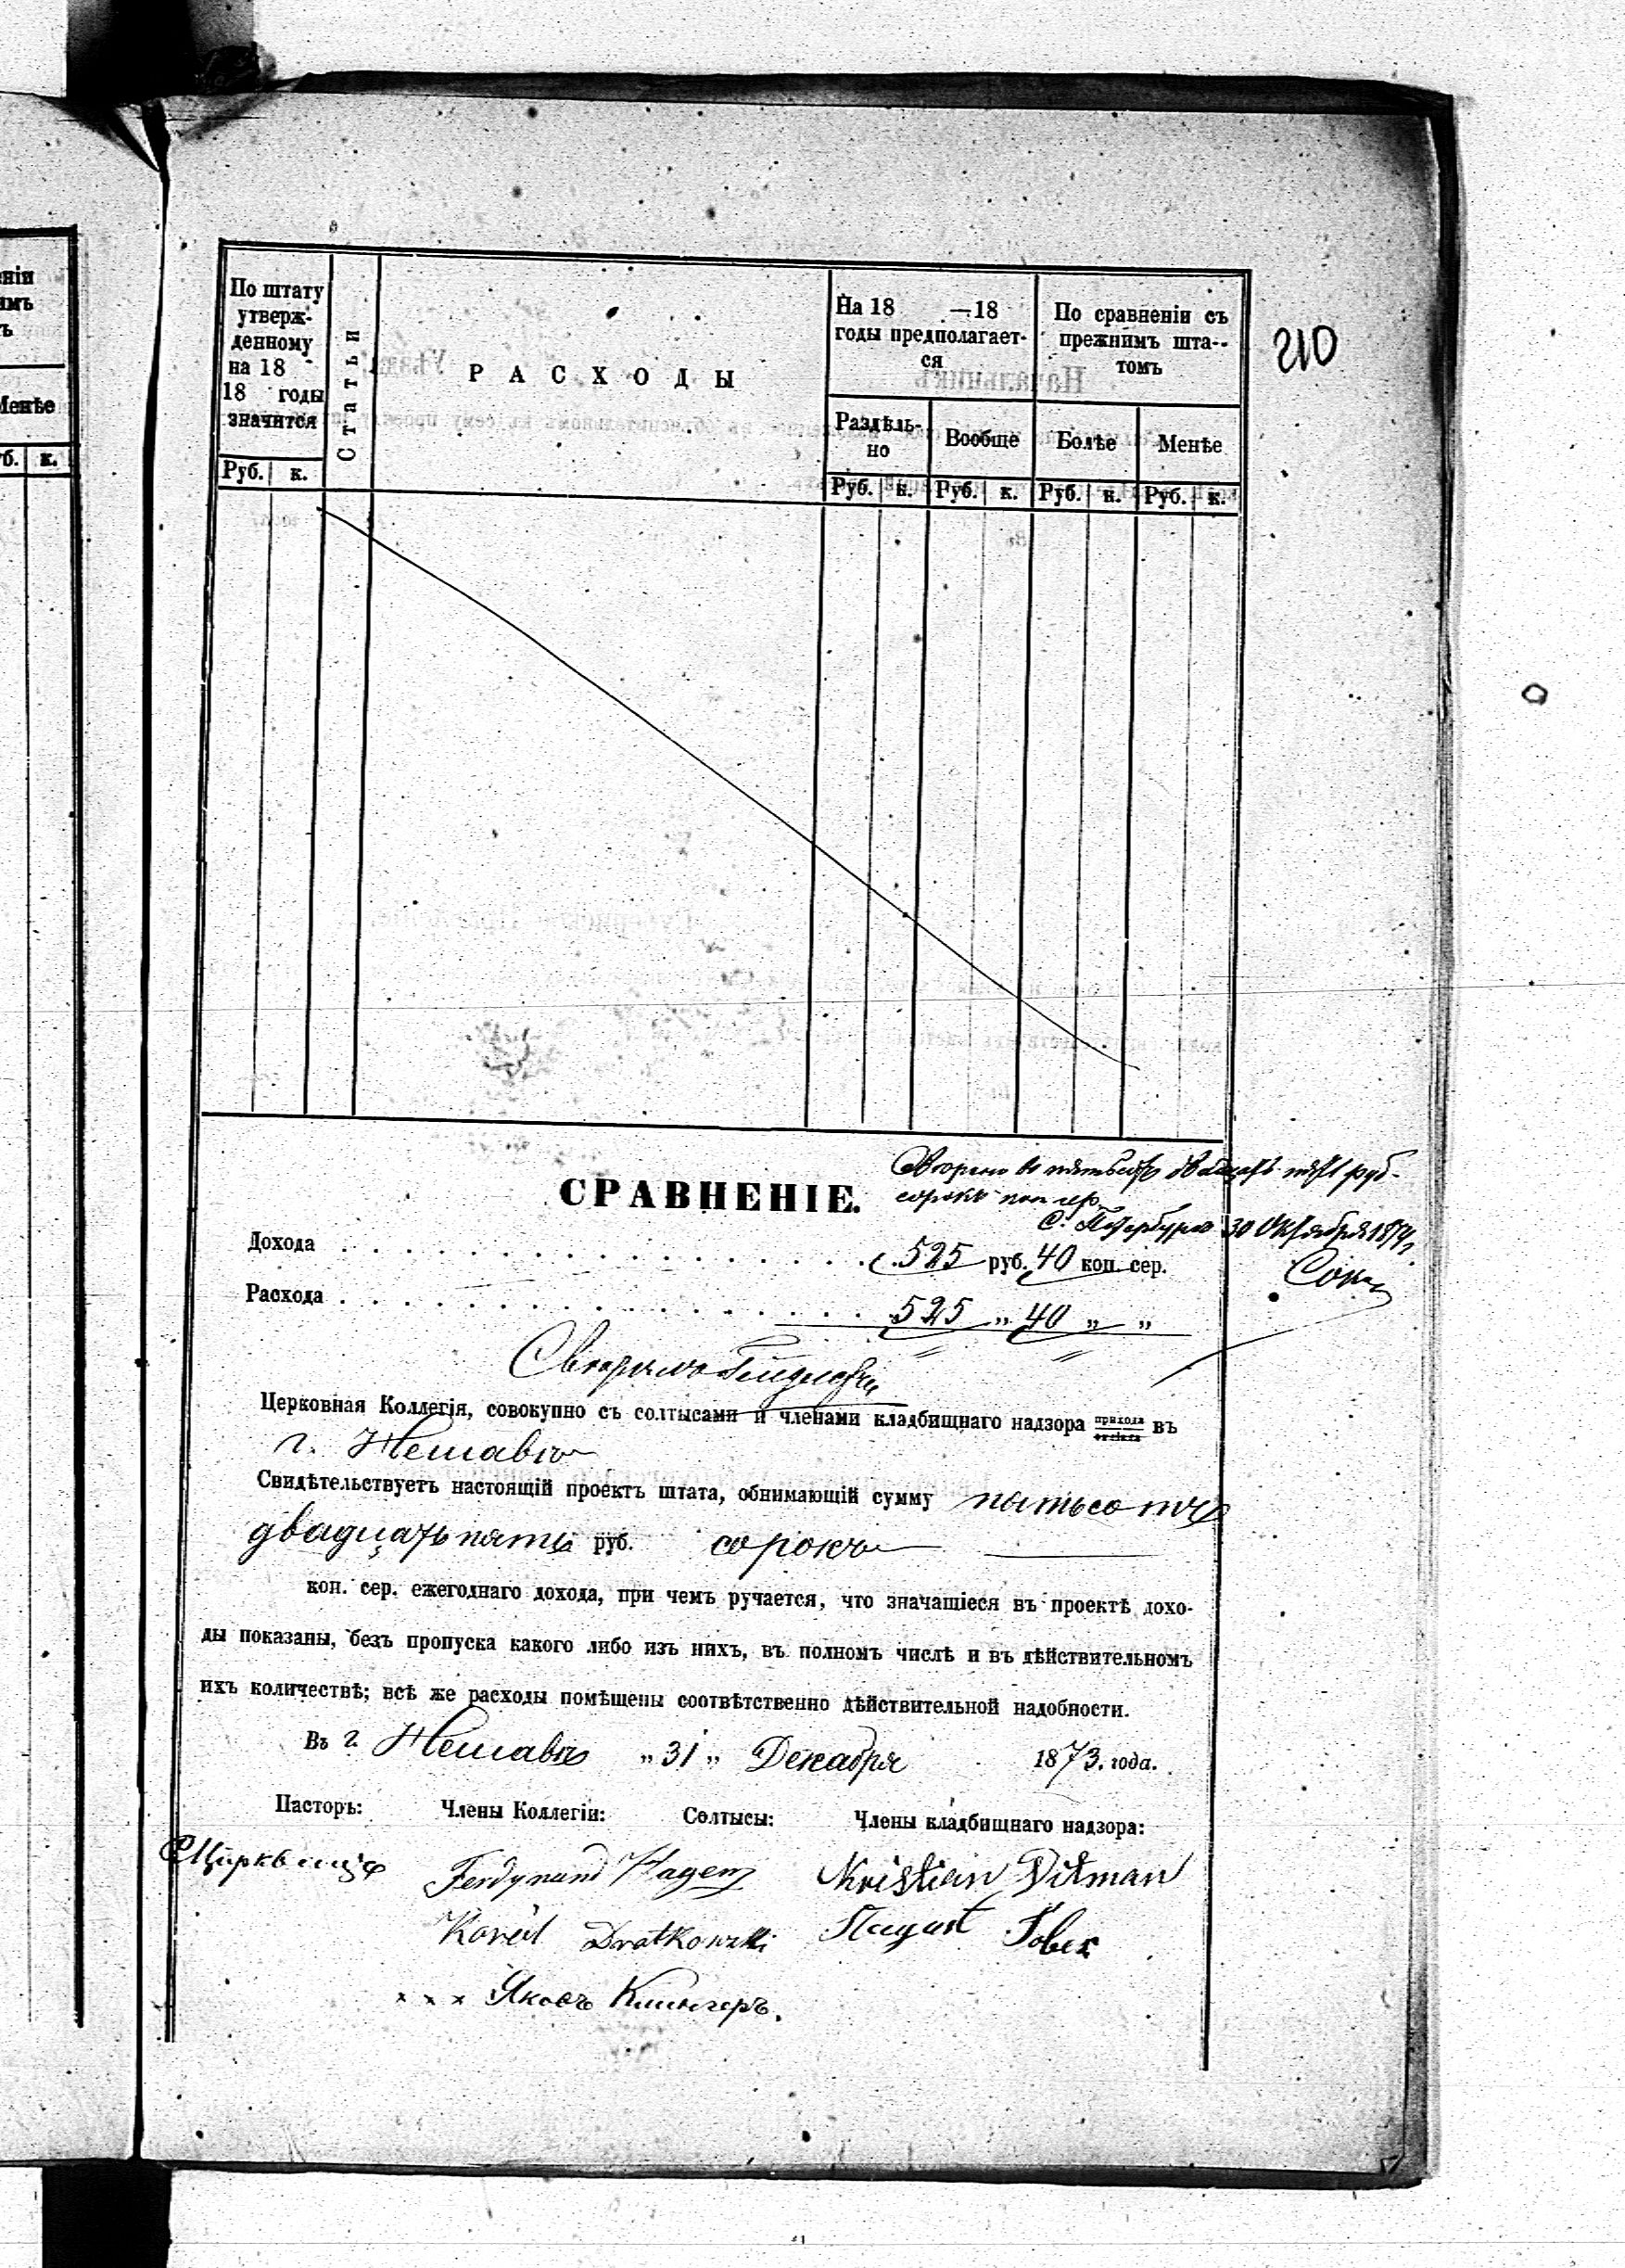 ніи
имъ
ъ
Менѣе
уб. к.
210
По штату
утверж-
денному
на 18 -
18 годы
значится
Руб. к.
Статьи
РАСХОДЫ
На 18 —18
годы предполагает-
ся
Раздѣль-
но
Вообще
Руб. к. Руб. к.
По сравненіи съ
прежнимъ шта-
томъ
Болѣе Менѣе
Руб. к. Руб. к.
пятьсотъ двадцать пять руб.
сорокъ коп сер.
С. Петербургъ 30 Октября 1874 г.
СРАВНЕНІЕ.
Дохода . . . . . 525 руб. 40 коп. сер.
Расхода . . . . . 525 „ 40 „ „
Церковная Коллегія, совокупно съ солтысами и членами кладбищнаго надзора прихода въ
г. Нешавѣ
Свидѣтельствуетъ настоящій проектъ штата, обнимающій сумму пятьсотъ
двадцать пять руб. сорокъ
коп. сер. ежегоднаго дохода, при чемъ ручается, что значащіеся въ проектѣ дохо-
ды показаны, безъ пропуска какого либо изъ нихъ, въ полномъ числѣ и въ дѣйствительномъ
ихъ количествѣ; всѣ же расходы помѣщены соотвѣтственно дѣйствительной надобности.
Въ г. Нешавѣ „31„ Декабря 1873. года.
Пасторъ: Члены Коллегіи: Солтысы: Члены кладбищнаго надзора:
Ferdynand Hagen Kristian Ditman
Karol Dratkowski August
x x x Яковъ